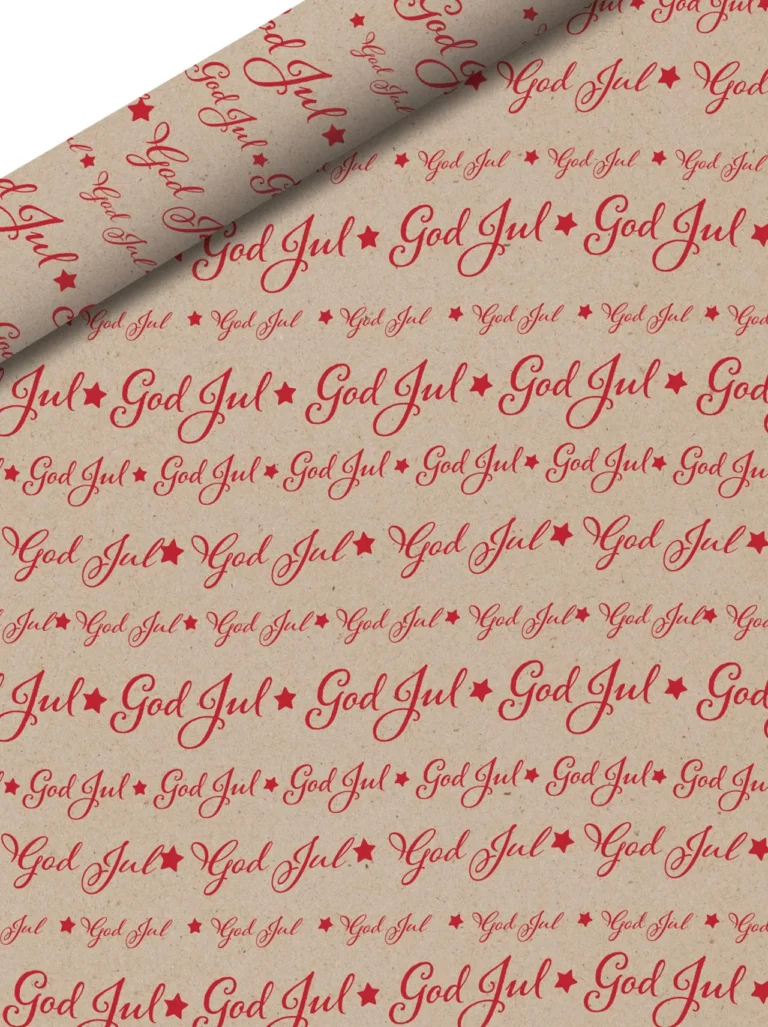 God Jul
God Jul
God Jul
God Jul
God Jul
Jul
God
Jul God Jul
God Jul God
Jul God Jul God Jul God Jul
God Jul God Jul God Jul
God Jul God Jul God Jul God Jul God Jul
Jul God Jul God Jul God Jul God
God Jul God Jul God Jul God Jul God Jul God Jul
God Jul God Jul God Jul God Jul
Jul God Jul God Jul God Jul God Jul God Jul
Jul God Jul God Jul God Jul God
God Jul God Jul God Jul God Jul God Jul God Jul
God Jul God Jul God Jul God Jul
Jul God Jul God Jul God Jul God Jul God Jul
God Jul God Jul God Jul God Jul